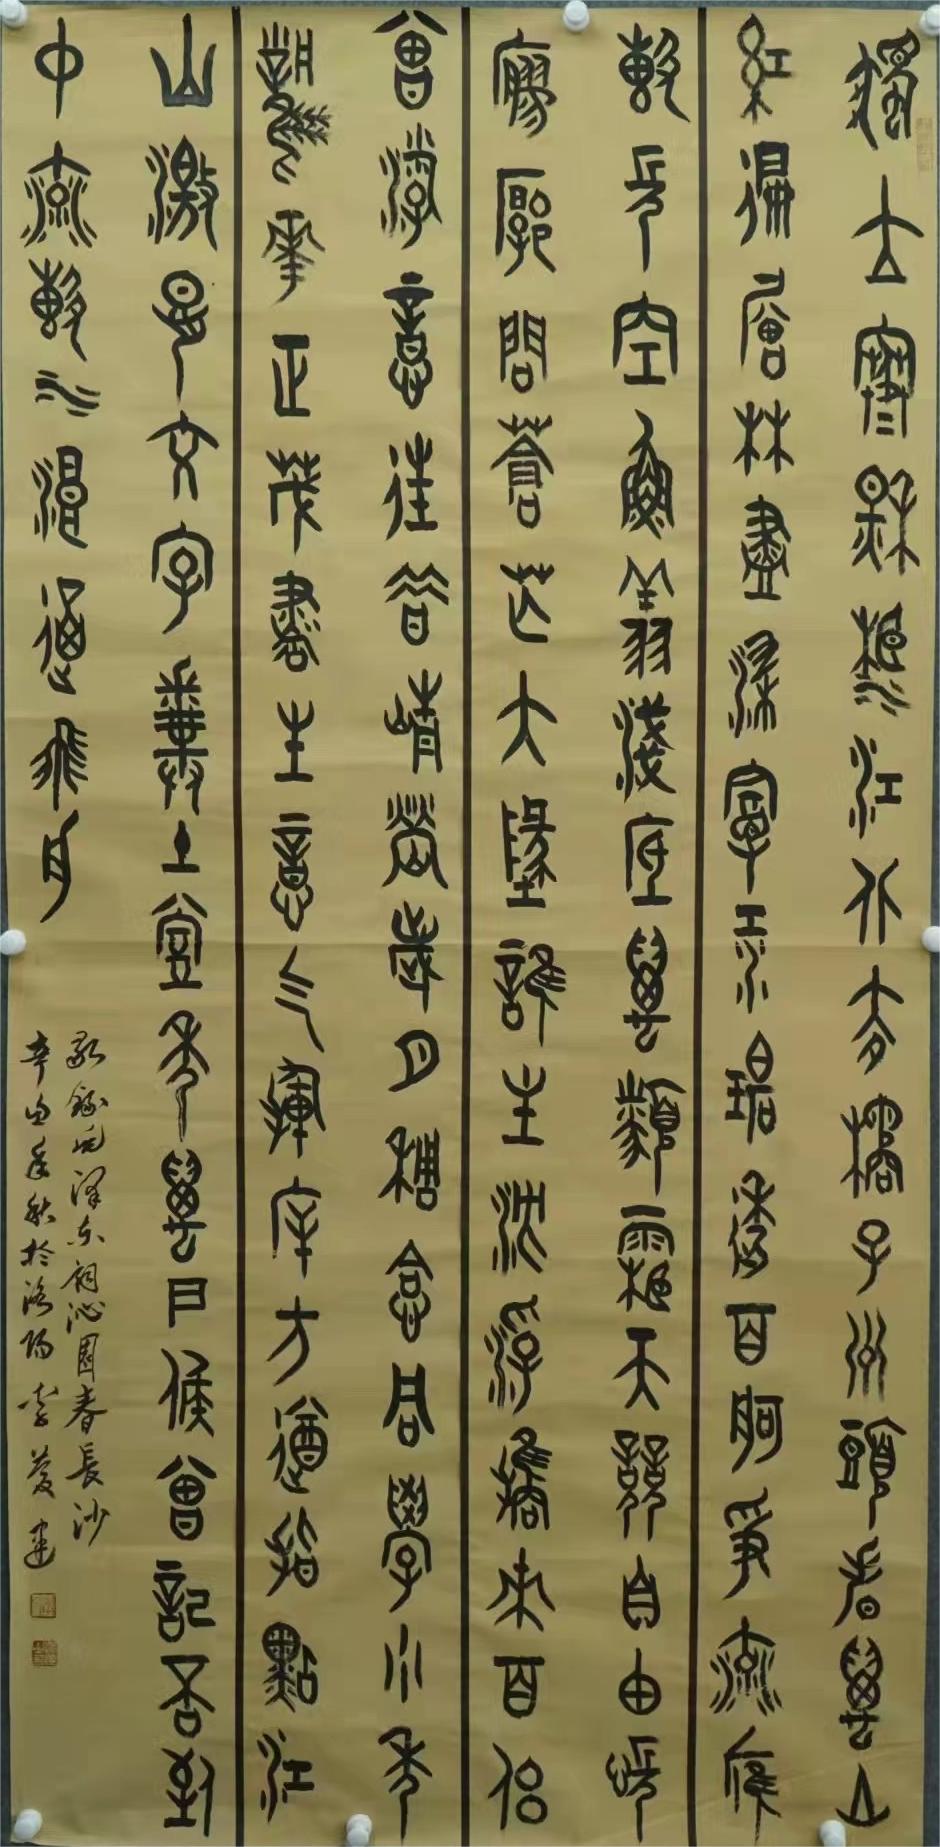 獨立寒秋湘江北去橘子洲頭看萬山
紅遍層林盡染漫江碧透百舸爭流鷹
擊長空魚翔淺底萬類霜天競自由悵
寥廓問蒼茫大地誰主沉浮攜來百侶
曾游憶往昔崢嶸歲月稠恰同學少年
風華正茂書生意氣揮斥方遒指點江
山激揚文字糞土當年萬戶侯曾記否到
中流擊水浪遏飛舟
敬錄毛澤東詞沁園春長沙
辛丑年秋於洛陽李建